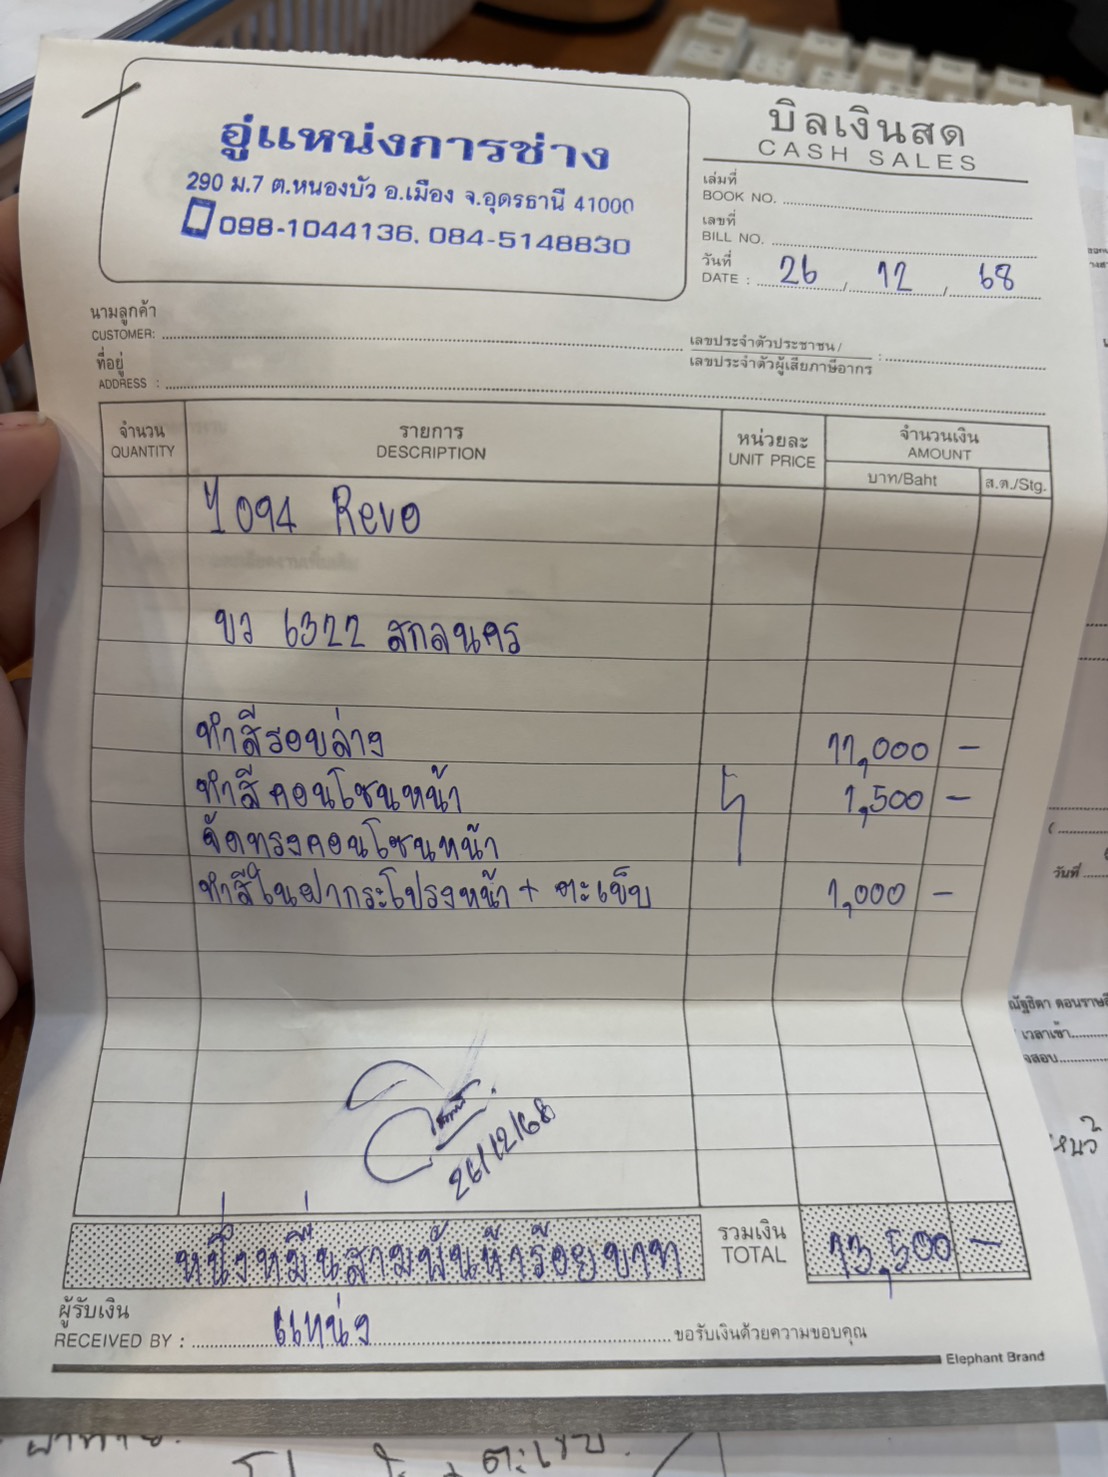 อู่แหน่งการช่าง
290 ม.7 ต.หนองบัว อ.เมือง จ.อุดรธานี 41000
098-1044136, 084-5148830
บิลเงินสด
CASH SALES
เล่มที่
BOOK NO.
เลขที่
BILL NO.
วันที่
DATE : 26 / 12 / 68
นามลูกค้า
CUSTOMER:
ที่อยู่
ADDRESS :
เลขประจำตัวประชาชน /
เลขประจำตัวผู้เสียภาษีอากร :
จำนวน
QUANTITY
รายการ
DESCRIPTION
หน่วยละ
UNIT PRICE
จำนวนเงิน
AMOUNT
บาท/Baht ส.ต./Stg.
Y 094 Revo
บว 6322 สกลนคร
ทำสีรอบล่าง 11,000 -
ทำสีคอนโซนหน้า 1,500 -
จัดทรงคอนโซนหน้า
ทำสีในฝากระโปรงหน้า + ตะเข็บ 1,000 -
26/12/68
หนึ่งหมื่นสามพันห้าร้อยบาท
รวมเงิน
TOTAL
13,500 -
ผู้รับเงิน
RECEIVED BY : แหน่ง ขอรับเงินด้วยความขอบคุณ
Elephant Brand
วันที่
เวลาเข้า
ตะเข็บ